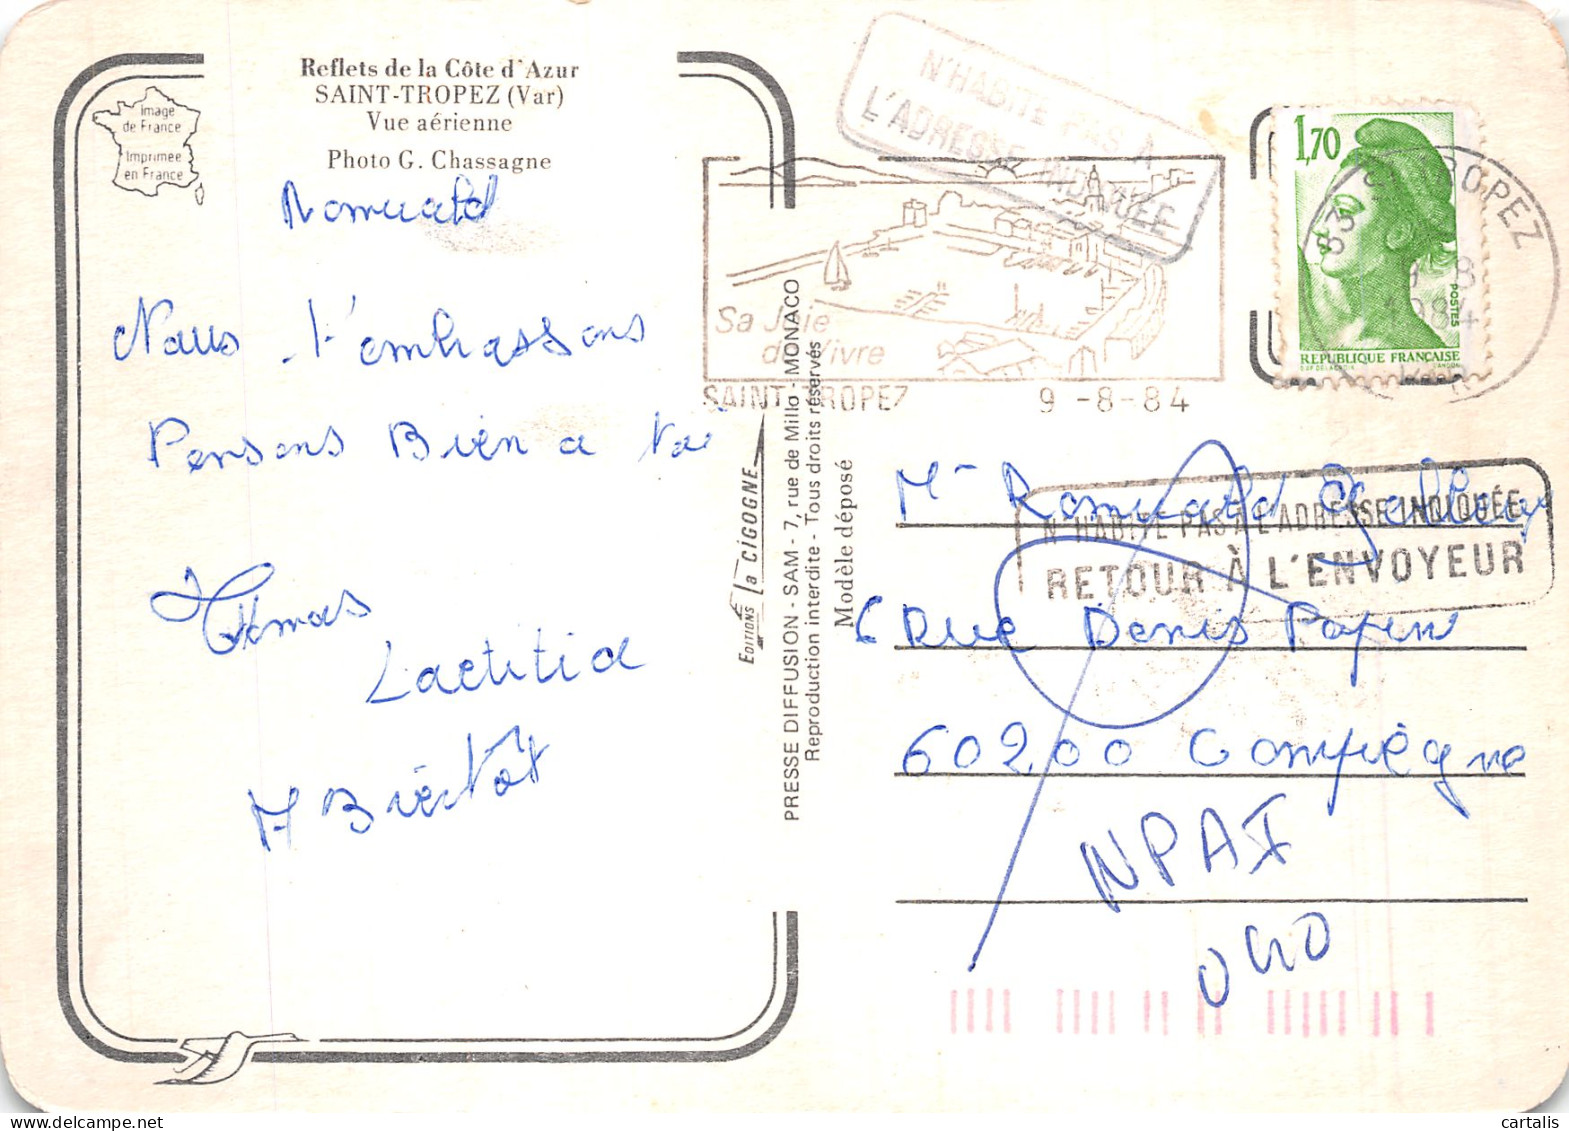 Reflets de la Côte d'Azur
SAINT-TROPEZ (Var)
Vue aérienne
Photo G. Chassagne
Image
de France
Imprimée
en France
Romuald
Nous t'embrassons
Pensons Bien a toi
Thomas
Laetitia
A Bientôt
EDITIONS la CIGOGNE
PRESSE DIFFUSION - SAM - 7, rue de Millo - MONACO
Reproduction interdite - Tous droits réservés
Modèle déposé
N'HABITE PAS A
L'ADRESSE INDIQUÉE
Sa Joie
de Vivre
SAINT TROPEZ
9 -8-84
1,70
POSTES
REPUBLIQUE FRANÇAISE
83 ST TROPEZ
9 8
1984
Mr Romuald
N'HABITE PAS A L'ADRESSE INDIQUÉE
RETOUR À L'ENVOYEUR
6 Rue Denis Papin
60200 Compiègne
NPAI
cartalis